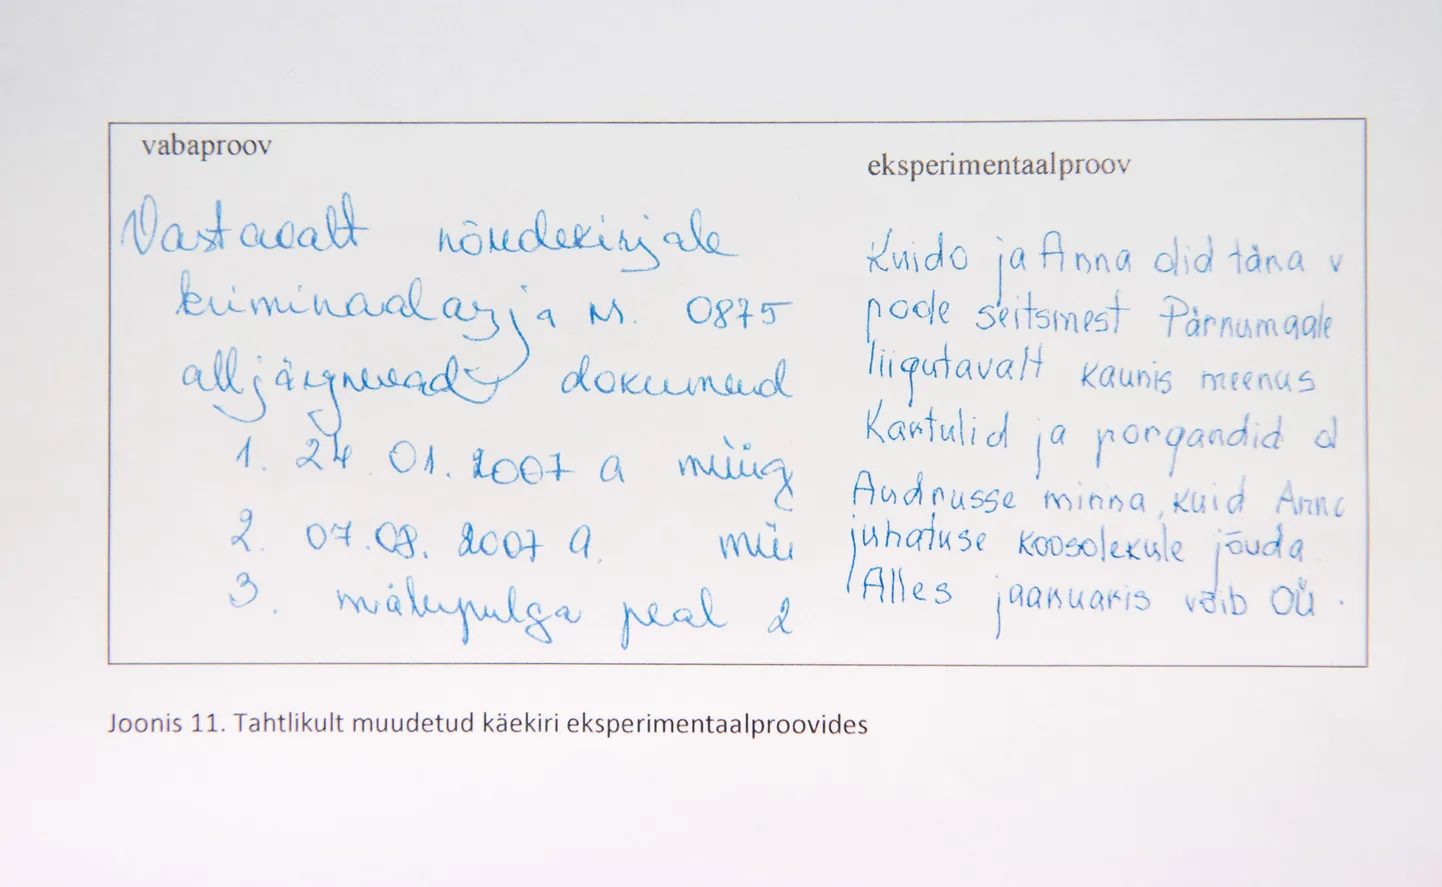 vabaproov
Vastavalt nõudekirjale
kriminaalasja N. 0875
alljärgnevad dokumend
1. 24 01. 2007 a müüg
2. 07.08. 2007 a. müü
3. mälupulga peal 2
eksperimentaalproov
Kuido ja Anna olid täna v
poole seitsmest Pärnumaale
liigutavalt kaunis meenus
Kartulid ja porgandid d
Audrusse minna, kuid Anna
juhatuse koosolekule jõuda
Alles jaanuaris võib OÜ
Joonis 11. Tahtlikult muudetud käekiri eksperimentaalproovides